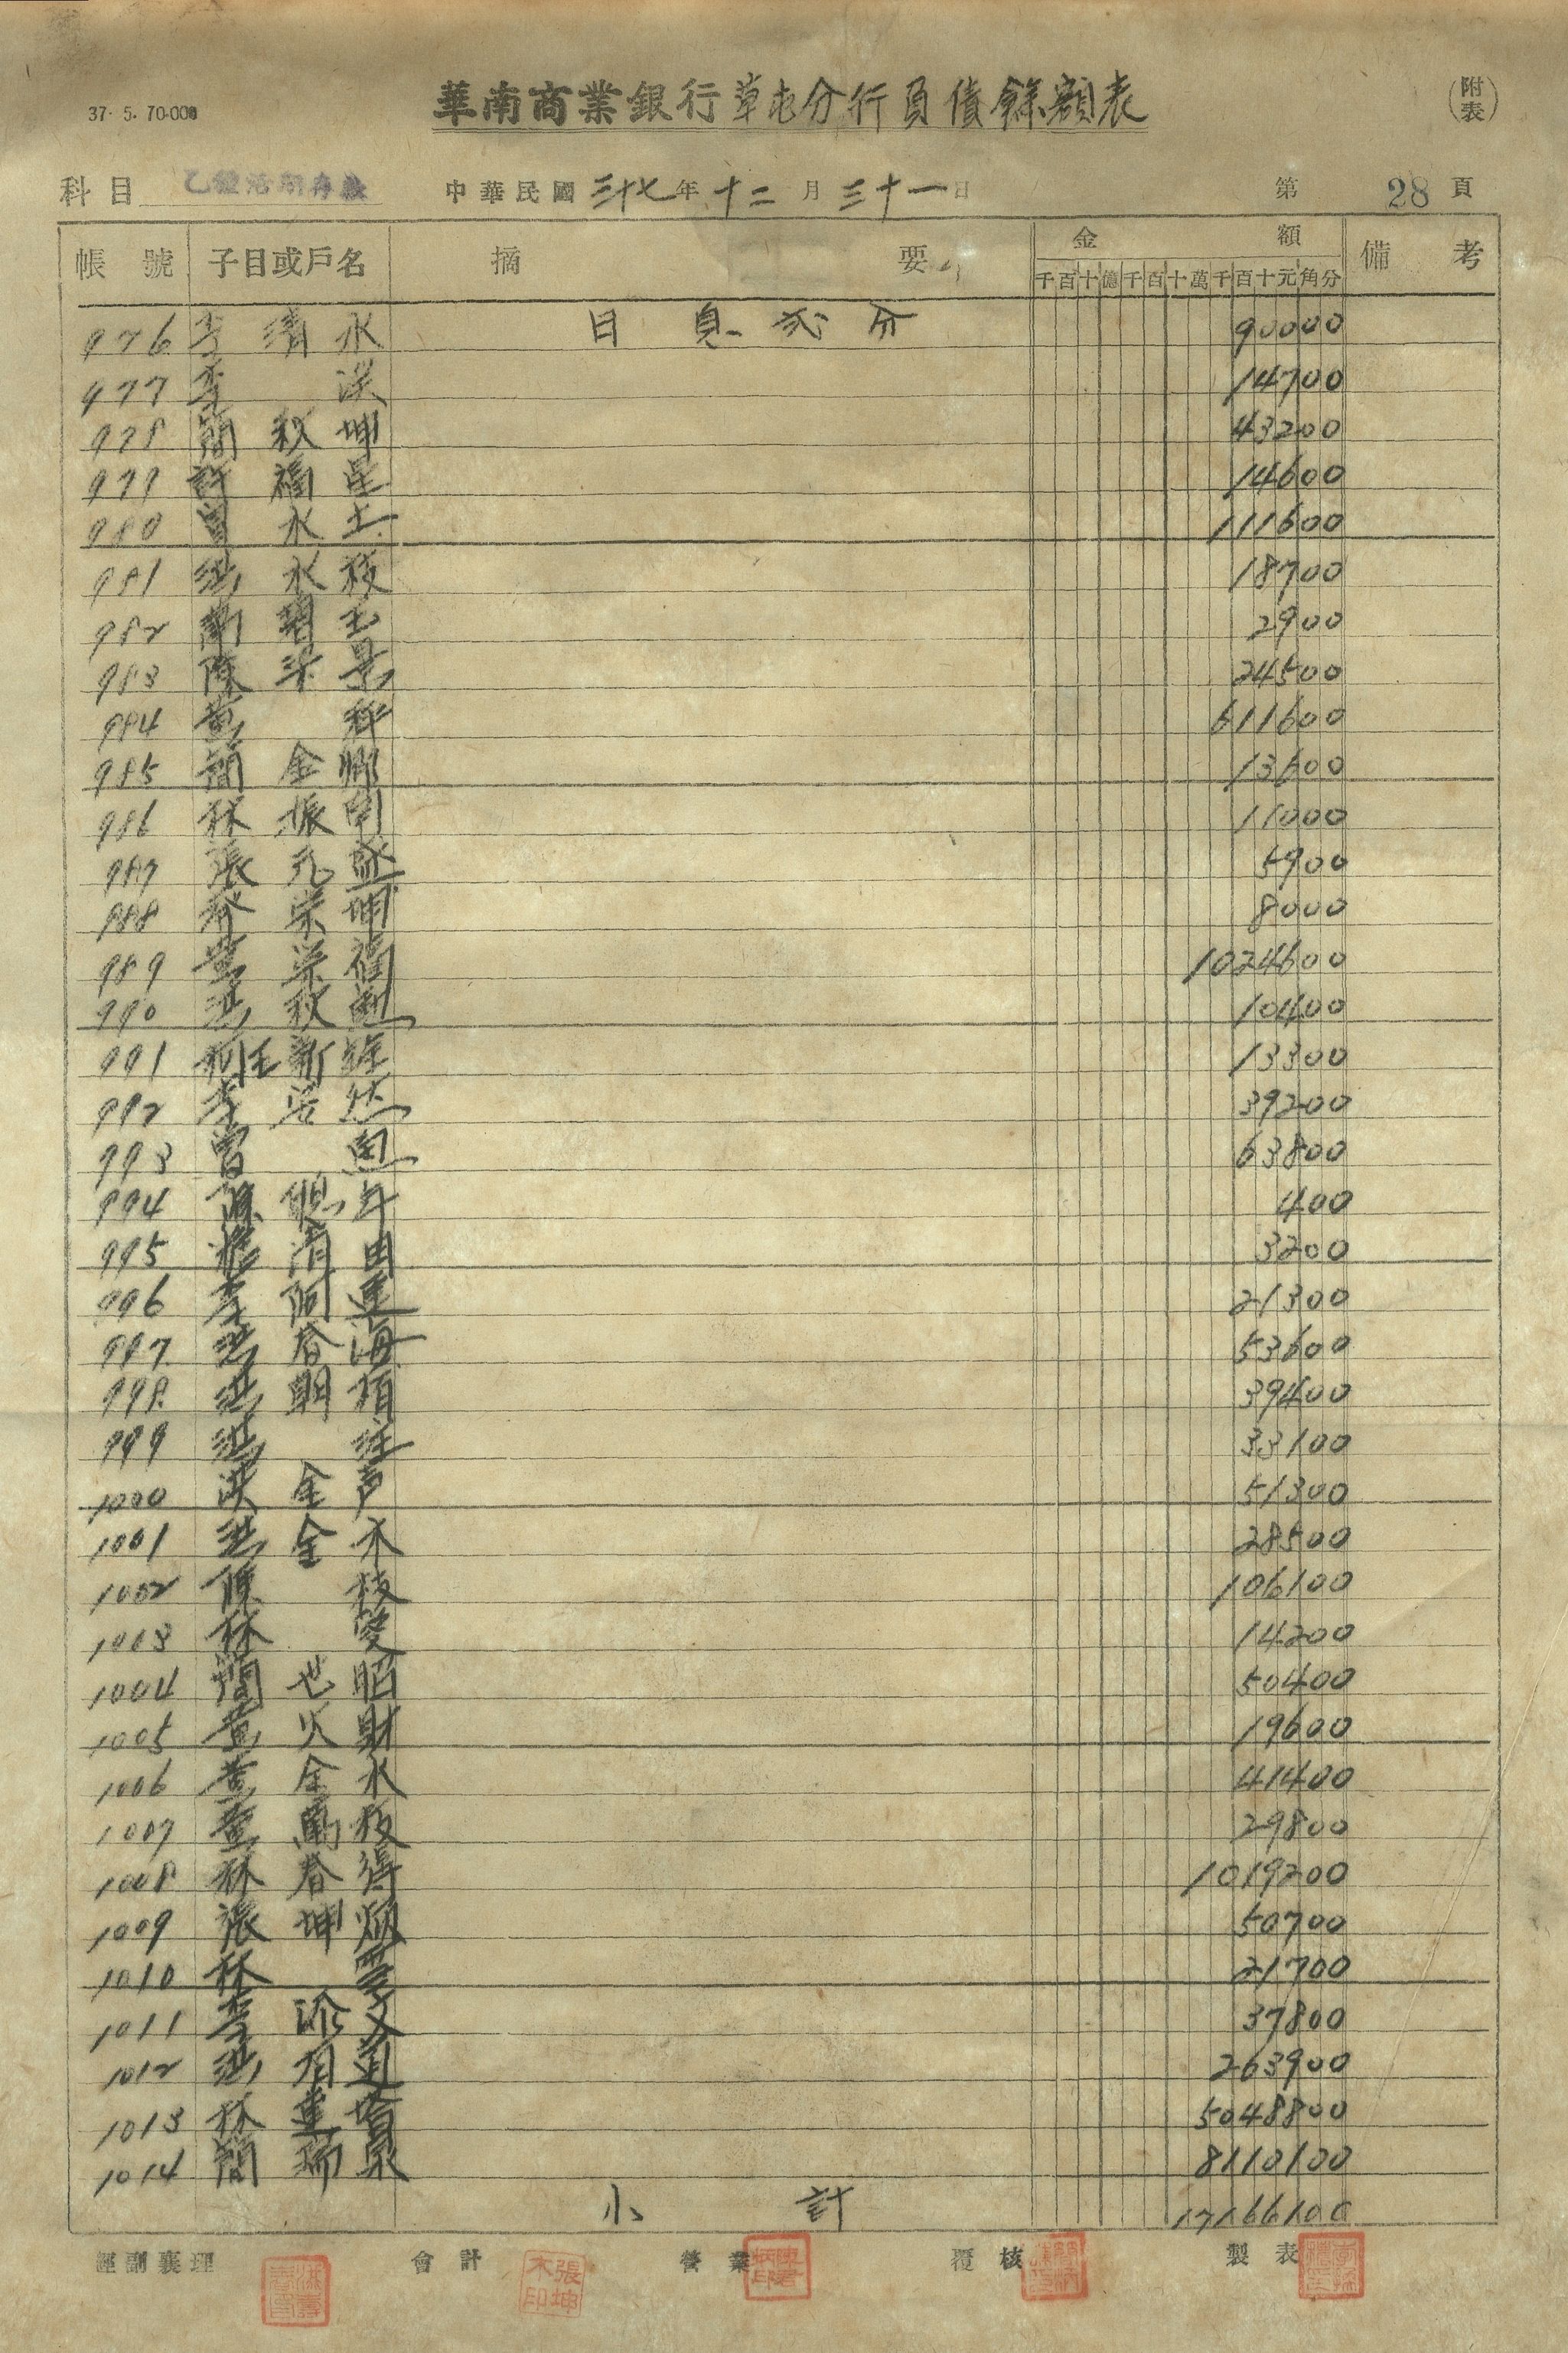 37. 5. 70.000
華南商業銀行草屯分行負債餘額表
(附表)
科目 乙種活期存款 中華民國三十七年十二月三十一日 第28頁
帳號 子目或戶名 摘要 金額 備考
千百十億千百十萬千百十元角分
976 李清水 日息弍分 90000
977 李洪 14700
978 簡秋坤 43200
979 許福星 14600
980 曾水土 111600
981 洪水枝 18700
982 簡碧玉 2900
983 陳柒景 24500
984 黃 611600
985 簡金鄉 13600
986 林振南 11000
987 張元 5900
988 林荣坤 8000
989 黃荣福 1024600
990 洪秋 10400
991 新 13300
992 李安然 39200
993 曾 63800
994 陳年 400
995 清由 3200
996 李阿蓮 21300
997 洪春海 53600
998 洪朝 39400
999 洪 33100
1000 洪金声 51300
1001 洪金木 28500
1002 陳枝 106100
1003 林 14200
1004 簡世昭 50400
1005 黃火財 19600
1006 黃金水 41400
1007 黃萬枝 29800
1008 林春得 1019200
1009 張坤 50700
1010 林 21700
1011 李添文 37800
1012 洪有 263900
1013 林 5048800
1014 簡瑞泉 8110100
小計 17166100
經副襄理 會計 營業 覆核 製表
張坤木印